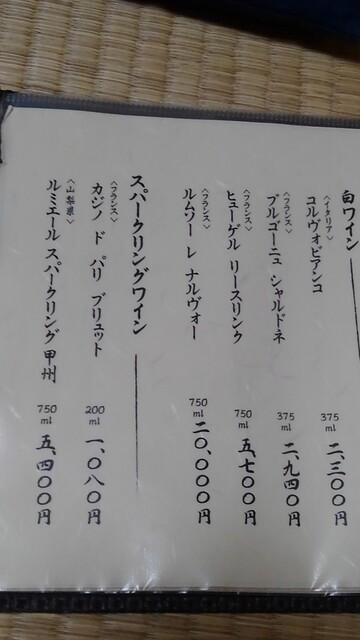 白ワイン
〈イタリア〉
コルヴォビアンコ 375ml 二、三〇〇円
〈フランス〉
ブルゴーニュ シャルドネ 375ml 二、九四〇円
〈フランス〉
ヒューゲル リースリンク 750ml 五、七〇〇円
〈フランス〉
ルムソー レ ナルヴォー 750ml 二〇、〇〇〇円
スパークリングワイン
〈フランス〉
カジノ ド パリ ブリュット 200ml 一、〇八〇円
〈山梨県〉
ルミエール スパークリング 甲州 750ml 五、四〇〇円